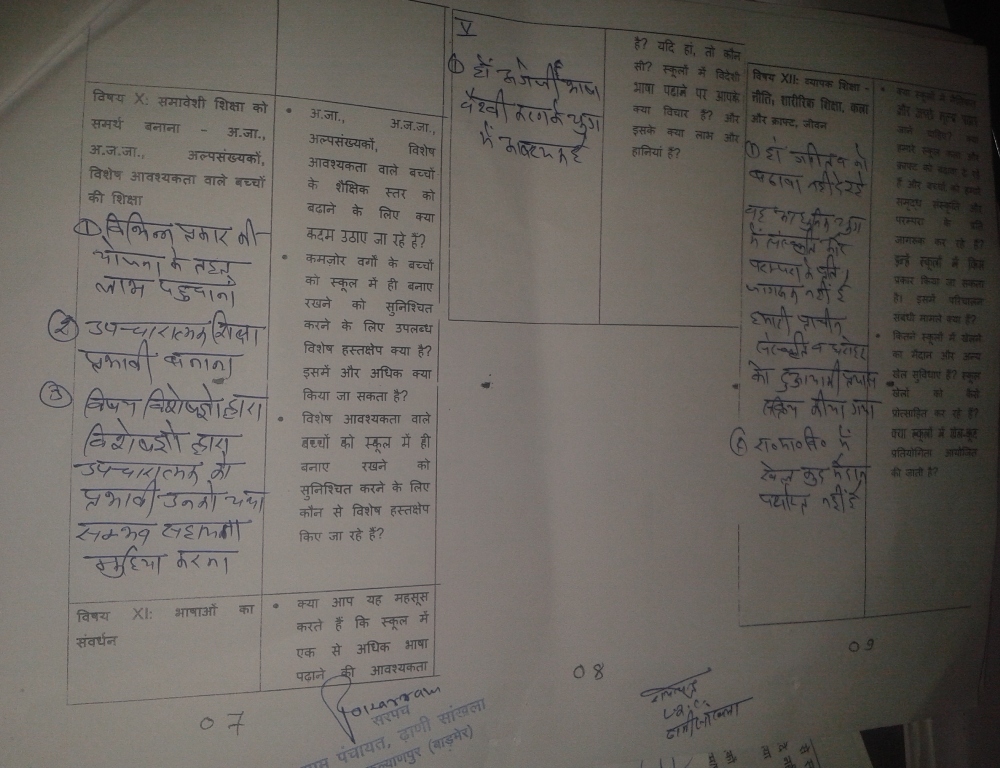 विषय X: समावेशी शिक्षा को
समर्थ बनाना - अ.जा.,
अ.ज.जा., अल्पसंख्यकों,
विशेष आवश्यकता वाले बच्चों
की शिक्षा
① विभिन्न प्रकार की
योजना के तहत
लाभ पहुचाना
② उपचारात्मक शिक्षा
प्रभावी बनाना
③ विषय विशेषज्ञो द्वारा
विशेषज्ञो द्वारा
उपचारात्मक को
प्रभावी उनको यथा
सम्भव सहायता
मुहिया करना
• अ.जा., अ.ज.जा.,
अल्पसंख्यकों, विशेष
आवश्यकता वाले बच्चों
के शैक्षिक स्तर को
बढाने के लिए क्या
कदम उठाए जा रहे हैं?
• कमज़ोर वर्गों के बच्चों
को स्कूल में ही बनाए
रखने को सुनिश्चित
करने के लिए उपलब्ध
विशेष हस्तक्षेप क्या है?
इसमें और अधिक क्या
किया जा सकता है?
• विशेष आवश्यकता वाले
बच्चों को स्कूल में ही
बनाए रखने को
सुनिश्चित करने के लिए
कौन से विशेष हस्तक्षेप
किए जा रहे हैं?
विषय XI: भाषाओं का
संवर्धन
• क्या आप यह महसूस
करते हैं कि स्कूल में
एक से अधिक भाषा
पढ़ाने की आवश्यकता
07
सरपंच
पंचायत, ढाणी सांखला
कल्याणपुर (बाड़मेर)
V
① हाँ अंग्रेजी भाषा
वैश्वीकरण के युग
में आवश्यक है
है? यदि हां, तो कौन
सी? स्कूलों में विदेशी
भाषा पढ़ाने पर आपके
क्या विचार है? और
इसके क्या लाभ और
हानियां है?
08
विषय XII: व्यापक शिक्षा -
नीति, शारीरिक शिक्षा, कला
और क्राफ्ट, जीवन
① हां
बढावा नही दे रहे
यह आधुनिक युग
में संस्कृति और
परम्परा के प्रति
जागरूक नहीं है
हमारी प्राचीन
संस्कृति व धरोहर
को
किया गया
② रा॰मा॰वि॰ में
खेल कुद मैदान
पर्याप्त नहीं है
समृद्ध संस्कृति और
परम्परा के प्रति
जागरूक कर रहे हैं?
इन्हें स्कूलों में किस
प्रकार किया जा सकता
है। इसमें परिचालन
संबंधी मामले क्या है?
• कितने स्कूलों में खेलने
का मैदान और अन्य
खेल सुविधाएं है? स्कूल
खेलों को कैसे
प्रोत्साहित कर रहे हैं?
क्या स्कूलों में खेल-कूद
प्रतियोगिता आयोजित
की जाती है?
09